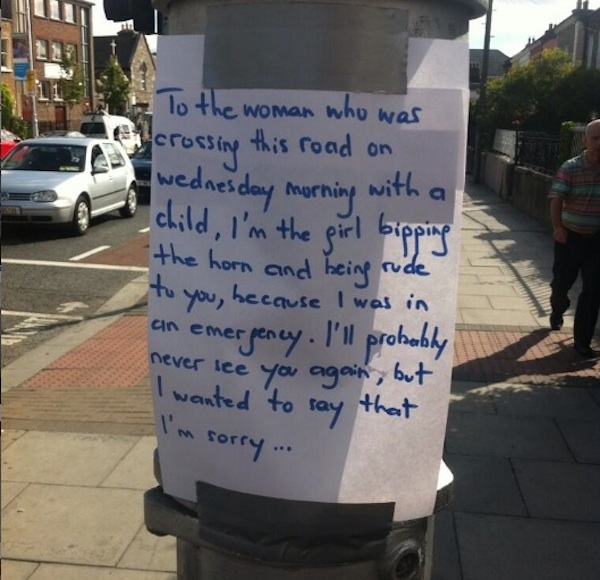 To the woman who was
crossing this road on
wednesday morning with a
child, I'm the girl bipping
the horn and being rude
to you, because I was in
an emergency. I'll probably
never see you again, but
I wanted to say that
I'm sorry...